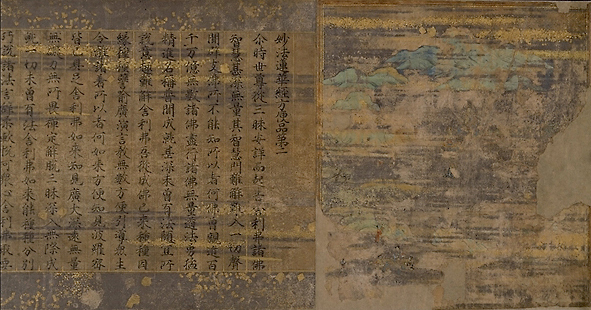 妙法蓮華經方便品第二
尒時世尊從三昧安詳而起告舍利弗諸佛
智慧甚深無量其智慧門難解難入一切聲
聞辟支佛所不能知所以者何佛曾親近百
千万億無數諸佛盡行諸佛無量道法勇猛
精進名稱普聞成就甚深未曾有法隨宜所
說意趣難解舍利弗吾從成佛已來種種因
緣種種譬喻廣演言教無數方便引導衆生
令離諸著所以者何如來方便知見波羅蜜
皆已具足舍利弗如來知見廣大深遠無量
無礙力無所畏禪定解脫三昧深入無際成
就一切未曾有法舍利弗如來能種種分別
巧說諸法言辭柔軟悅可衆心舍利弗取要